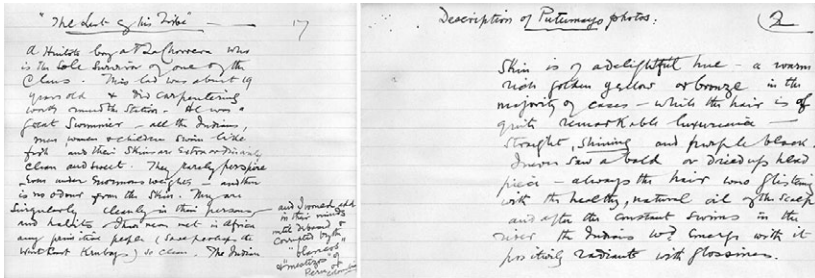 "The Last of his Tribe" — 17
A Huitoto boy at La Chorrera who
is the sole survivor of one of the
Clans. This lad was about 19
years old & did carpentering
work round the Station. He was a
great Swimmer — all the Indians,
men, women & children swim like
fish and their skins are extraordinarily
clean and sweet. They rarely perspire
even under enormous weights — and there
is no odour from the skin. They are
singularly cleanly in their persons
and habits. I have never met in Africa
any primitive people (save perhaps the
West Coast Kruboys) so clean. The Indian
and I would add
in their minds
until debased or
corrupted by the
"blancos"
& "mestizos" of
Peru
Description of Putumayo photos: 2
Skin is of a delightful hue — a warm
rich golden yellow or bronze in the
majority of cases — while the hair is of
quite remarkable luxuriance —
straight, shining and purple black.
I never saw a bald or dried up head
piece — always the hair was glistening
with the healthy, natural oil of the scalp
and after the constant swims in the
river the Indians wd emerge with it
positively radiant with glossiness.